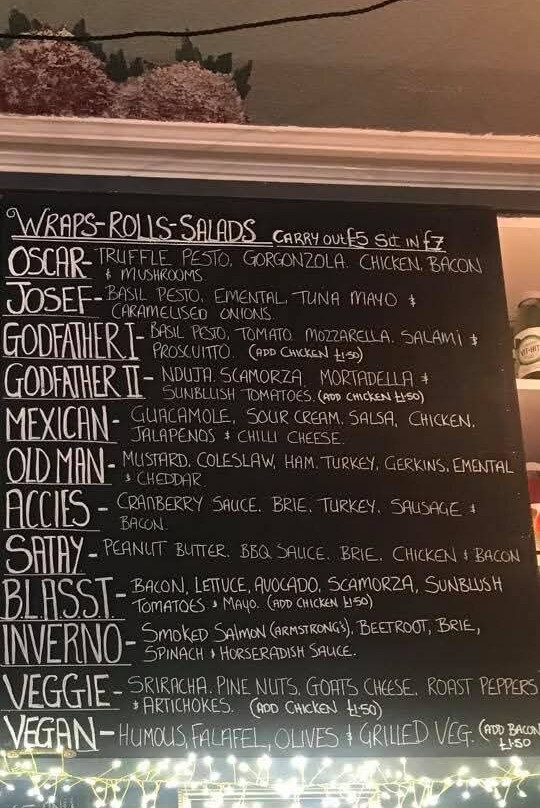 WRAPS-ROLLS-SALADS CARRY OUT £5 Sit IN £7
OSCAR- TRUFFLE PESTO, GORGONZOLA, CHICKEN, BACON
& MUSHROOMS
JOSEF- BASIL PESTO, EMENTAL, TUNA MAYO &
CARAMELISED ONIONS.
GODFATHER I- BASIL PESTO, TOMATO, MOZZARELLA, SALAMI &
PROSCUITTO. (ADD CHICKEN £1·50)
GODFATHER II- NDUJA, SCAMORZA, MORTADELLA &
SUNBLUSH TOMATOES. (ADD CHICKEN £1·50)
MEXICAN- GUACAMOLE, SOUR CREAM, SALSA, CHICKEN,
JALAPENOS & CHILLI CHEESE.
OLD MAN- MUSTARD, COLESLAW, HAM, TURKEY, GERKINS, EMENTAL
& CHEDDAR
ACCIES- CRANBERRY SAUCE, BRIE, TURKEY, SAUSAGE &
BACON.
SATAY- PEANUT BUTTER, BBQ SAUCE, BRIE, CHICKEN & BACON
B.L.A.S.S.T- BACON, LETTUCE, AVOCADO, SCAMORZA, SUNBLUSH
TOMATOES & MAYO. (ADD CHICKEN £1·50)
INVERNO- SMOKED SALMON (ARMSTRONG'S), BEETROOT, BRIE,
SPINACH & HORSERADISH SAUCE.
VEGGIE- SRIRACHA, PINE NUTS, GOATS CHEESE, ROAST PEPPERS
& ARTICHOKES. (ADD CHICKEN £1·50)
VEGAN- HUMOUS, FALAFEL, OLIVES & GRILLED VEG. (ADD BACON
£1·50